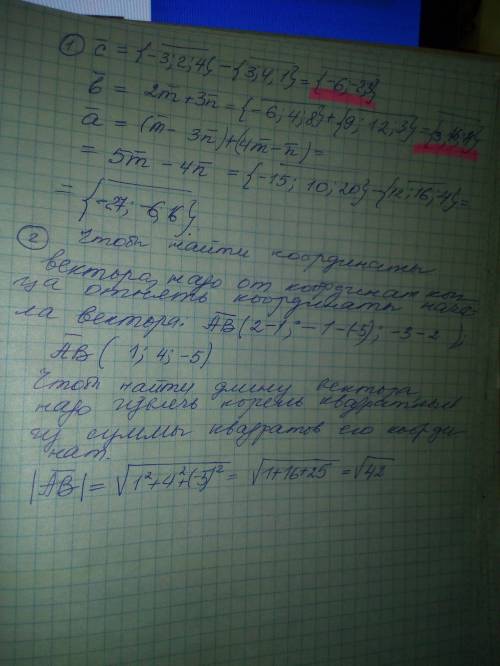 ① c̄ = {-3; 2; 4} - {3; 4; 1} = {-6; -2; 3}
b̄ = 2m̄ + 3n̄ = {-6; 4; 8} + {9; 12; 3} =
ā = (m̄ - 3n̄) + (4m̄ - n̄) =
= 5m̄ - 4n̄ = {-15; 10; 20} - {12; 16; 4} =
= {-27; -6; 16}
② Чтобы найти координаты
вектора, надо от координат кон-
ца отнять координаты нача-
ла вектора: AB (2-1; -1-(-5); -3-2);
AB (1; 4; -5)
Чтобы найти длину вектора
надо извлечь корень квадратный
из суммы квадратов его коорди
нат.
|AB| = √1²+4²+(-5)² = √1+16+25 = √42